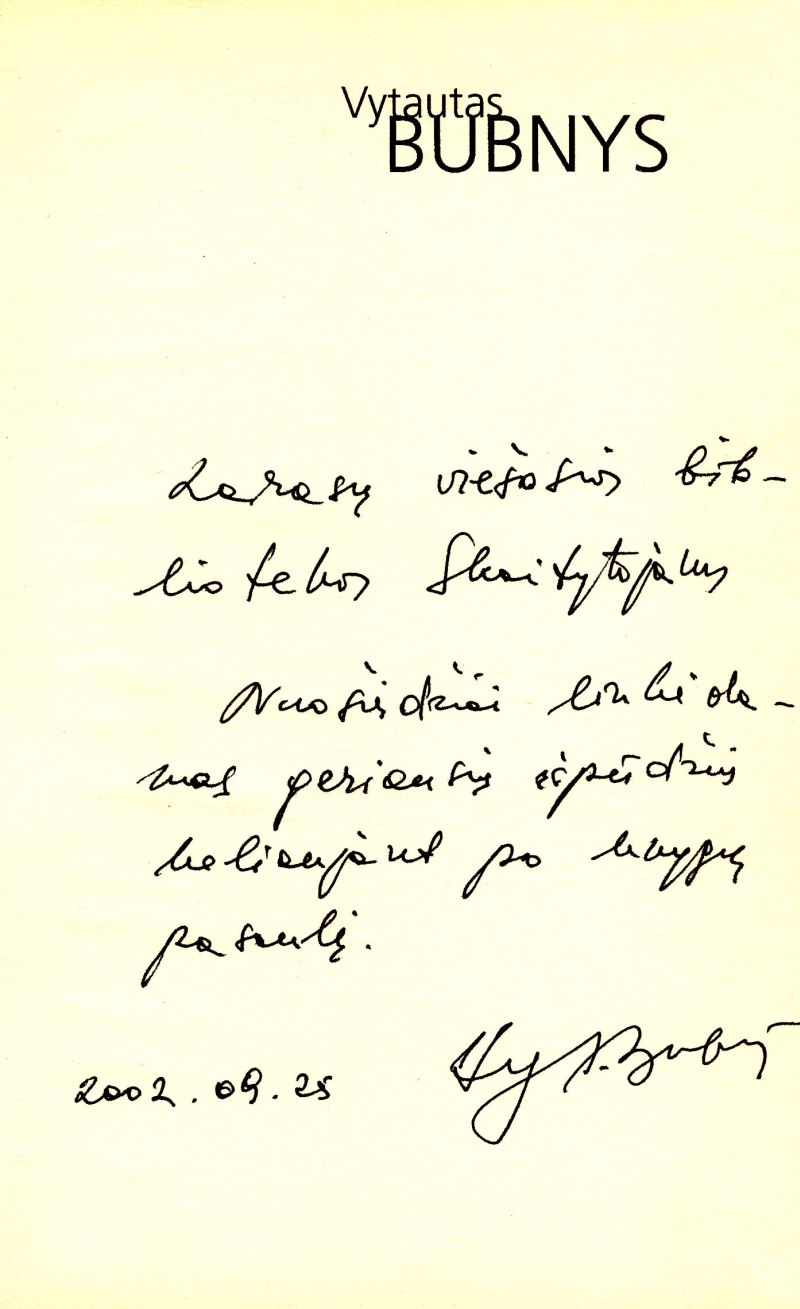 Vytautas
BUBNYS
Zarasų viešosios bib-
liotekos Skaitytojams
Nuoširdžiai linkėda-
mas geriausių įspūdžių
keliaujant po knygų
pasaulį.
2002.09.25
Vyt. Bubnys